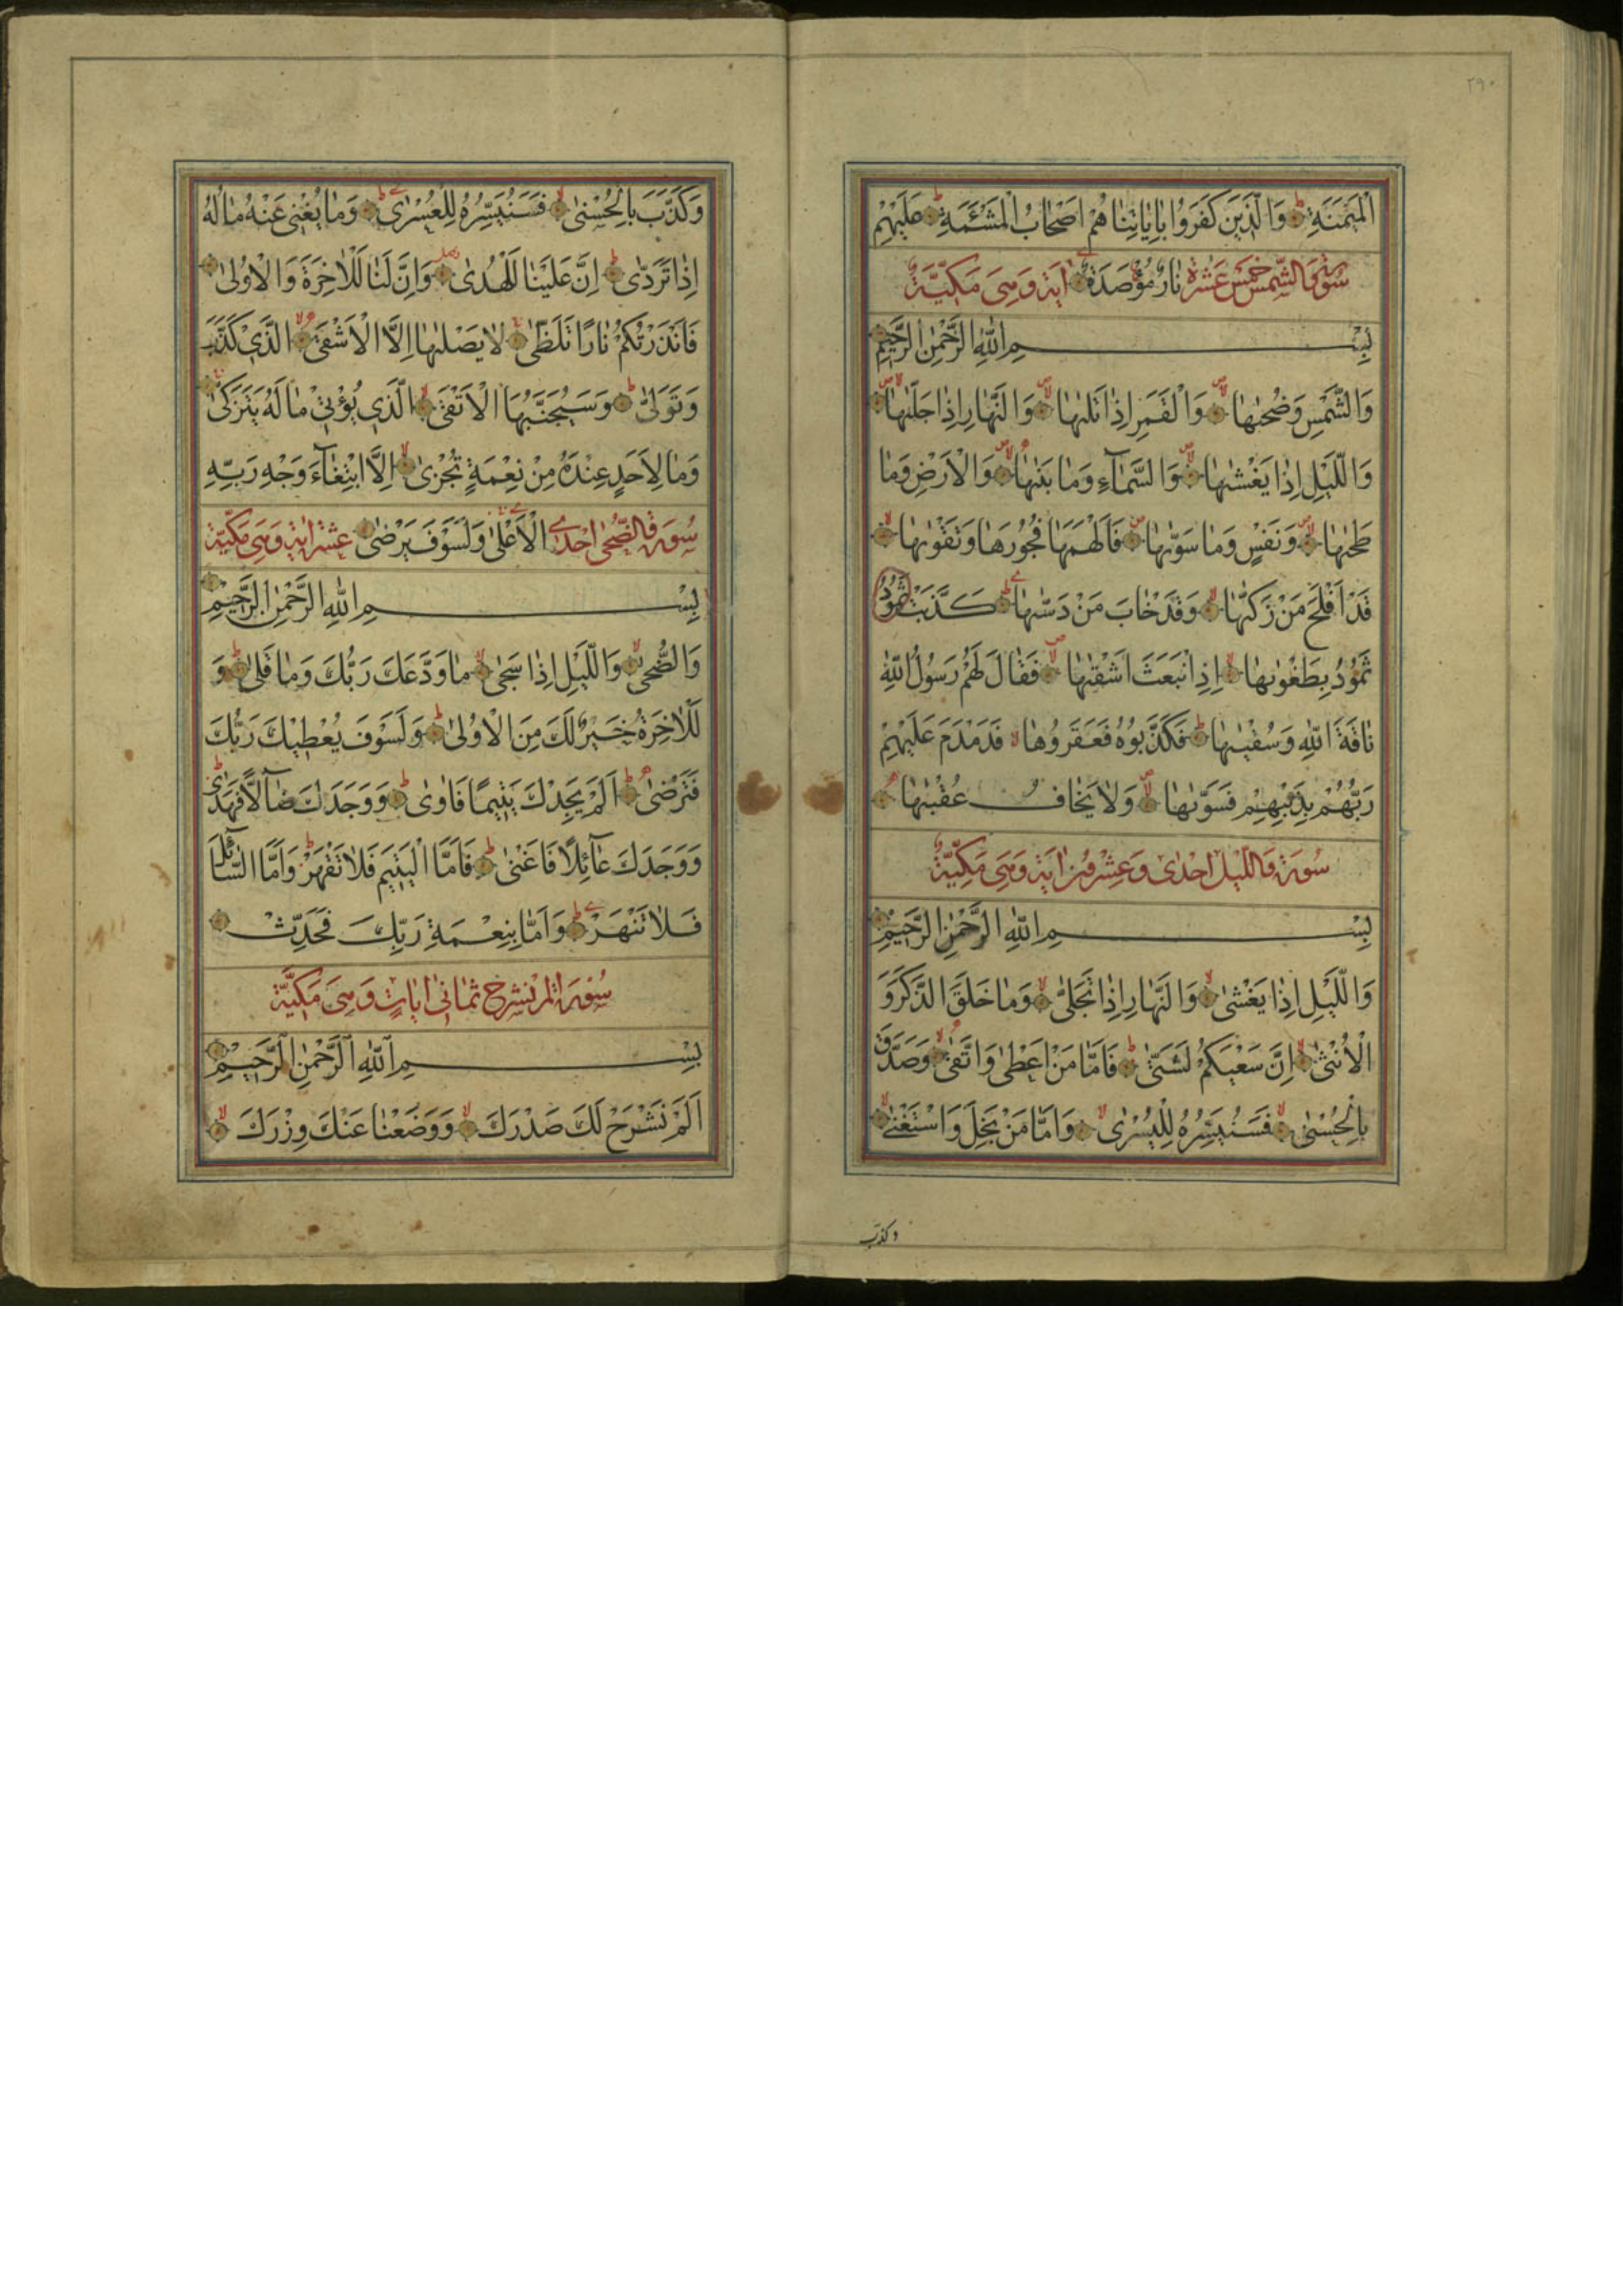 ٢٩٠
الْمَيْمَنَةِ وَالَّذِينَ كَفَرُوا بِاٰيَاتِنَا هُمْ اَصْحَابُ الْمَشْئَمَةِ عَلَيْهِمْ
سُورَةُ وَالشَّمْسِ خَمْسَ عَشْرَةَ نَارٌ مُؤْصَدَةٌ اٰيَة وَهِيَ مَكِّيَّةٌ
بِسْمِ اللّٰهِ الرَّحْمٰنِ الرَّحِيمِ
وَالشَّمْسِ وَضُحٰيهَا وَالْقَمَرِ اِذَا تَلٰيهَا وَالنَّهَارِ اِذَا جَلّٰيهَا
وَاللَّيْلِ اِذَا يَغْشٰيهَا وَالسَّمَآءِ وَمَا بَنٰيهَا وَالْاَرْضِ وَمَا
طَحٰيهَا وَنَفْسٍ وَمَا سَوّٰيهَا فَاَلْهَمَهَا فُجُورَهَا وَتَقْوٰيهَا
قَدْ اَفْلَحَ مَنْ زَكّٰيهَا وَقَدْ خَابَ مَنْ دَسّٰيهَا كَذَّبَتْ ثَمُودُ
ثَمُودُ بِطَغْوٰيهَا اِذِ انْبَعَثَ اَشْقٰيهَا فَقَالَ لَهُمْ رَسُولُ اللّٰهِ
نَاقَةَ اللّٰهِ وَسُقْيٰيهَا فَكَذَّبُوهُ فَعَقَرُوهَا فَدَمْدَمَ عَلَيْهِمْ
رَبُّهُمْ بِذَنْبِهِمْ فَسَوّٰيهَا وَلَا يَخَافُ عُقْبٰيهَا
سُورَة وَاللَّيْلِ اِحْدٰى وَعِشْرُونَ اٰيَة وَهِيَ مَكِّيَّةٌ
بِسْمِ اللّٰهِ الرَّحْمٰنِ الرَّحِيمِ
وَاللَّيْلِ اِذَا يَغْشٰى وَالنَّهَارِ اِذَا تَجَلّٰى وَمَا خَلَقَ الذَّكَرَ وَ
الْاُنْثٰى اِنَّ سَعْيَكُمْ لَشَتّٰى فَاَمَّا مَنْ اَعْطٰى وَاتَّقٰى وَصَدَّقَ
بِالْحُسْنٰى فَسَنُيَسِّرُهُ لِلْيُسْرٰى وَاَمَّا مَنْ بَخِلَ وَاسْتَغْنٰى
وكذب
وَكَذَّبَ بِالْحُسْنٰى فَسَنُيَسِّرُهُ لِلْعُسْرٰى وَمَا يُغْنِي عَنْهُ مَالُهُ
اِذَا تَرَدّٰى اِنَّ عَلَيْنَا لَلْهُدٰى وَاِنَّ لَنَا لَلْاٰخِرَةَ وَالْاُولٰى
فَاَنْذَرْتُكُمْ نَارًا تَلَظّٰى لَا يَصْلٰيهَا اِلَّا الْاَشْقَى الَّذِي كَذَّبَ
وَتَوَلّٰى وَسَيُجَنَّبُهَا الْاَتْقَى الَّذِي يُؤْتِي مَالَهُ يَتَزَكّٰى
وَمَا لِاَحَدٍ عِنْدَهُ مِنْ نِعْمَةٍ تُجْزٰى اِلَّا ابْتِغَآءَ وَجْهِ رَبِّهِ
سُورَة وَالضُّحٰى اِحْدٰى الْاَعْلٰى وَلَسَوْفَ يَرْضٰى عَشَرَ اٰيَة وَهِيَ مَكِّيَّة
بِسْمِ اللّٰهِ الرَّحْمٰنِ الرَّحِيمِ
وَالضُّحٰى وَاللَّيْلِ اِذَا سَجٰى مَا وَدَّعَكَ رَبُّكَ وَمَا قَلٰى وَ
لَلْاٰخِرَةُ خَيْرٌ لَكَ مِنَ الْاُولٰى وَلَسَوْفَ يُعْطِيكَ رَبُّكَ
فَتَرْضٰى اَلَمْ يَجِدْكَ يَتِيمًا فَاٰوٰى وَوَجَدَكَ ضَآلًّا فَهَدٰى
وَوَجَدَكَ عَآئِلًا فَاَغْنٰى فَاَمَّا الْيَتِيمَ فَلَا تَقْهَرْ وَاَمَّا السَّآئِلَ
فَلَا تَنْهَرْ وَاَمَّا بِنِعْمَةِ رَبِّكَ فَحَدِّثْ
سُورَة اَلَمْ نَشْرَحْ ثَمَانِي اٰيَاتٍ وَهِيَ مَكِّيَّة
بِسْمِ اللّٰهِ الرَّحْمٰنِ الرَّحِيمِ
اَلَمْ نَشْرَحْ لَكَ صَدْرَكَ وَوَضَعْنَا عَنْكَ وِزْرَكَ